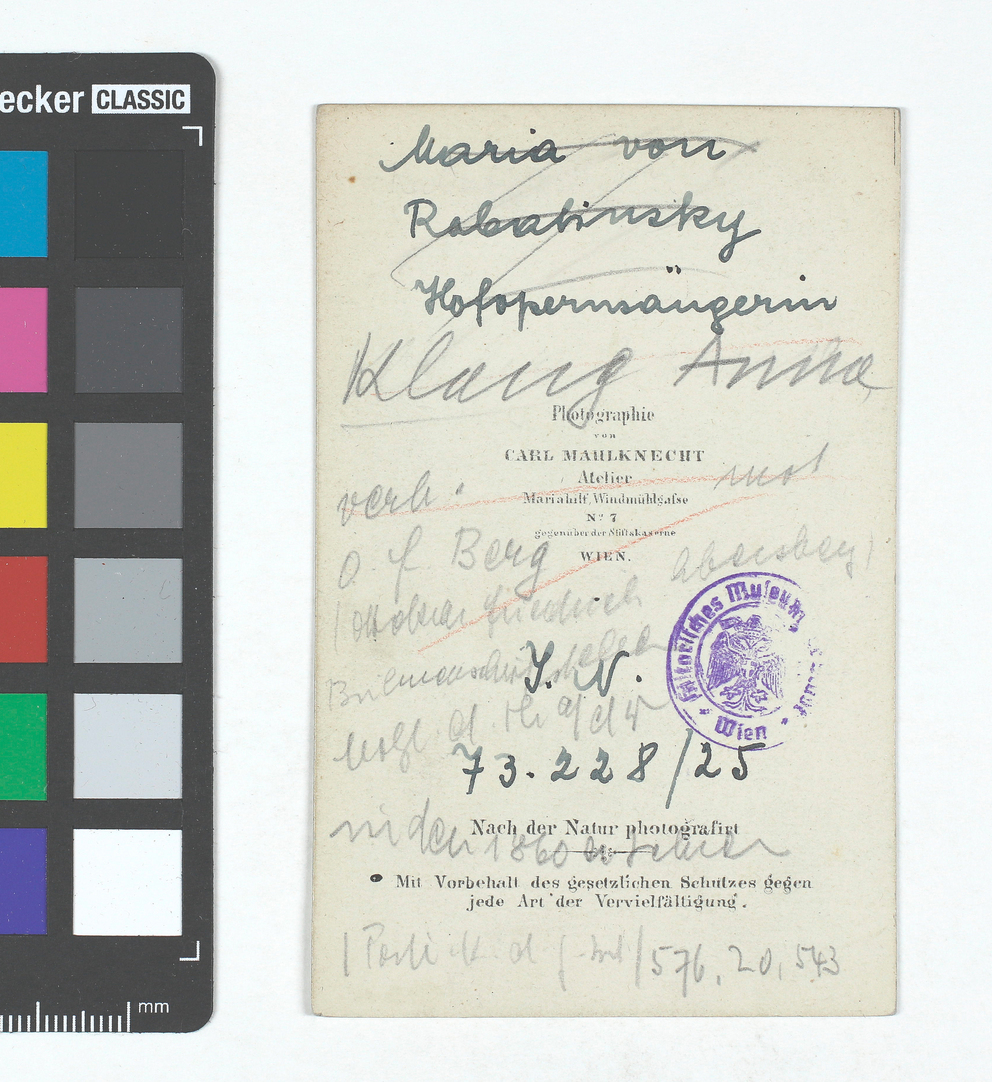 ecker CLASSIC
Maria von
Rabatinsky
Hofopernsängerin
Klang Anna
Photographie
von
CARL MAHLKNECHT
Atelier
Mariahilf, Windmühlgasse
No 7
gegenüber der Stiftskaserne
WIEN.
verh. mit
O. F. Berg
Ebersberg)
Friedrich
Historisches Museum
Wien
I. N.
73.228/25
Nach der Natur photografirt
in den 1860er Jahren
Mit Vorbehalt des gesetzlichen Schutzes gegen
jede Art der Vervielfältigung.
576, 20, 543
mm